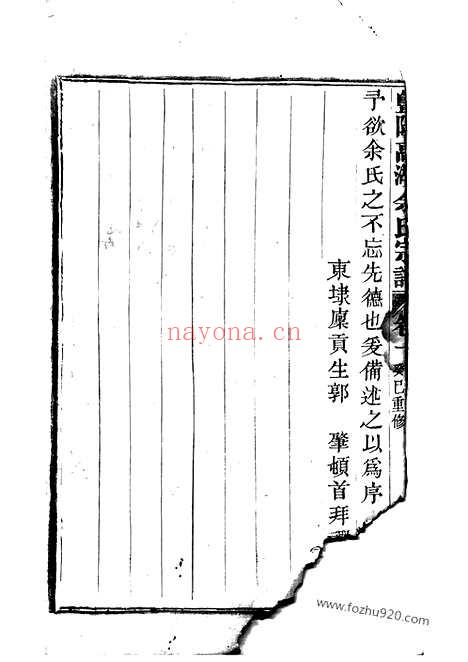 暨陽高湖余氏宗譜 卷一 癸巳重修
予欲余氏之不忘先德也爰備述之以為序
東埭廩貢生郭 肇頓首拜
nayona.cn
www.fozhu920.com